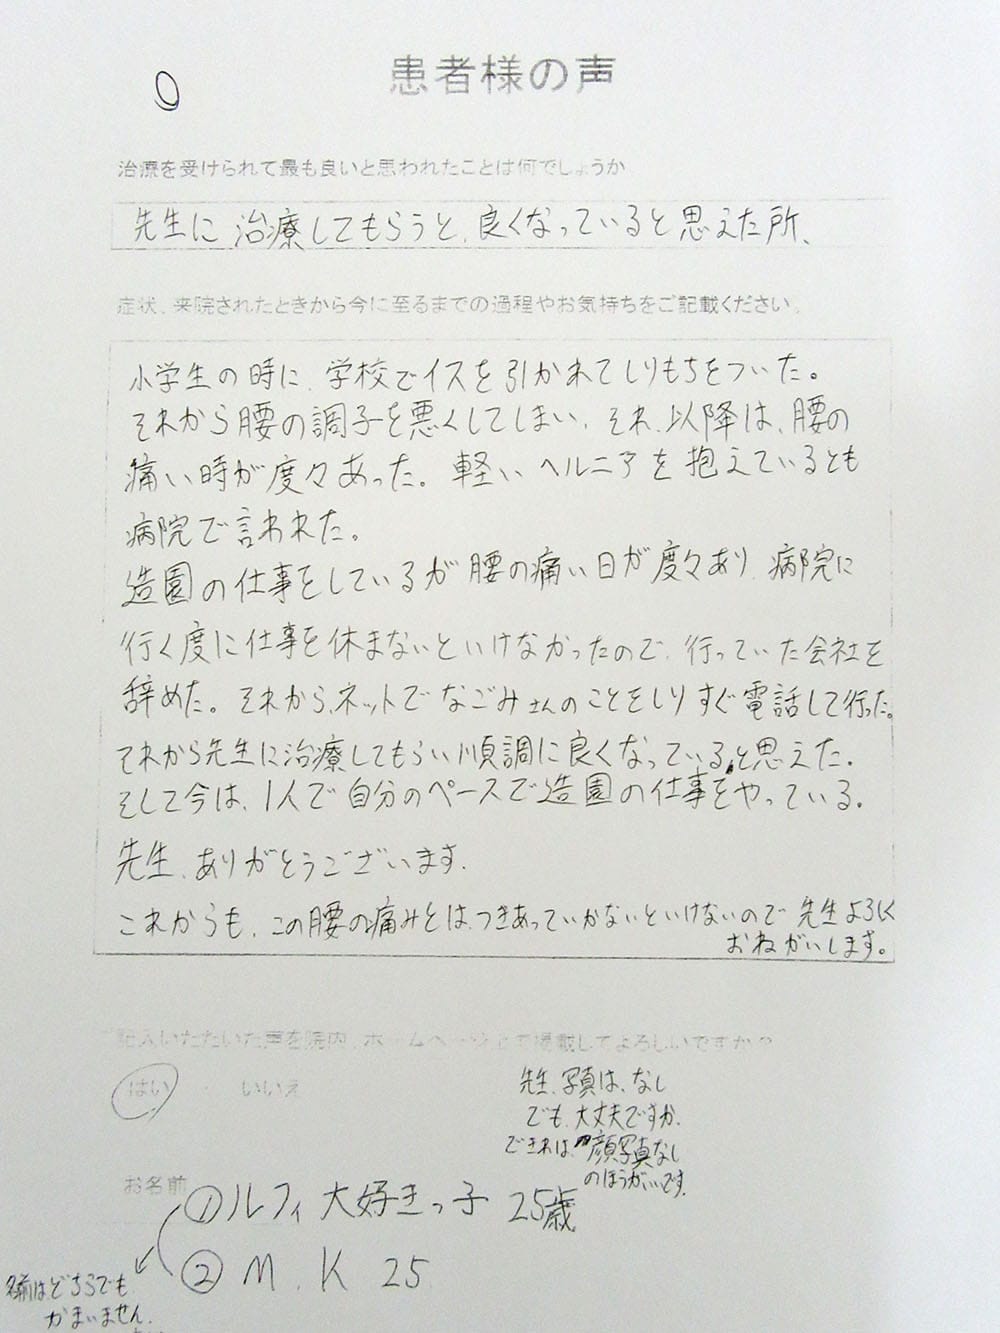 患者様の声
治療を受けられて最も良いと思われたことは何でしょうか
先生に、治療してもらうと、良くなっていると思えた所、
症状、来院されたときから今に至るまでの過程やお気持ちをご記載ください。
小学生の時に、学校でイスを引かれてしりもちをついた。
それから腰の調子を悪くしてしまい、それ、以降は、腰の
痛い時が度々あった。軽いヘルニアを抱えているとも
病院で言われた。
造園の仕事をしているが腰の痛い日が度々あり、病院に
行く度に仕事を休まないといけなかったので、行っていた会社を
辞めた。それから、ネットでなごみさんのことをしりすぐ電話して行った。
それから先生に治療してもらい順調に良くなっていると思えた。
そして今は、1人で自分のペースで造園の仕事をやっている。
先生、ありがとうございます。
これからも、この腰の痛みとは、つきあっていかないといけないので先生よろしく
おねがいします。
記入いただいた声を院内、ホームページ上で掲載してよろしいですか?
はい ・ いいえ
先生、写真は、なし
でも、大丈夫ですか。
できれば、顔写真なし
のほうがいいです。
お名前
①ルフィ大好きっ子 25歳
② M.K 25
名前はどちらでも
かまいません。